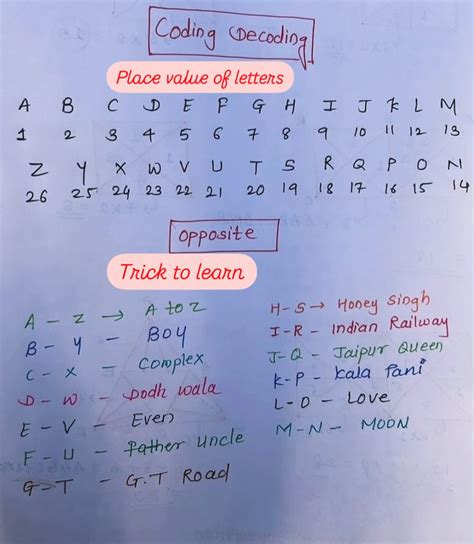 Coding Decoding
Place value of letters
A B C D E F G H I J K L M
1 2 3 4 5 6 7 8 9 10 11 12 13
Z Y X W V U T S R Q P O N
26 25 24 23 22 21 20 19 18 17 16 15 14
OPPOSITE
Trick to learn
A - Z → A to Z
B - Y - Boy
C - X - Complex
D - W - Dodh wala
E - V - Even
F - U - Father Uncle
G - T - G.T Road
H - S → Honey Singh
I - R - Indian Railway
J - Q - Jaipur Queen
K - P - Kala Pani
L - O - Love
M - N - MOON